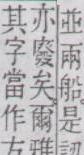 並兩船是
亦廢矣爾雅
其字當作方